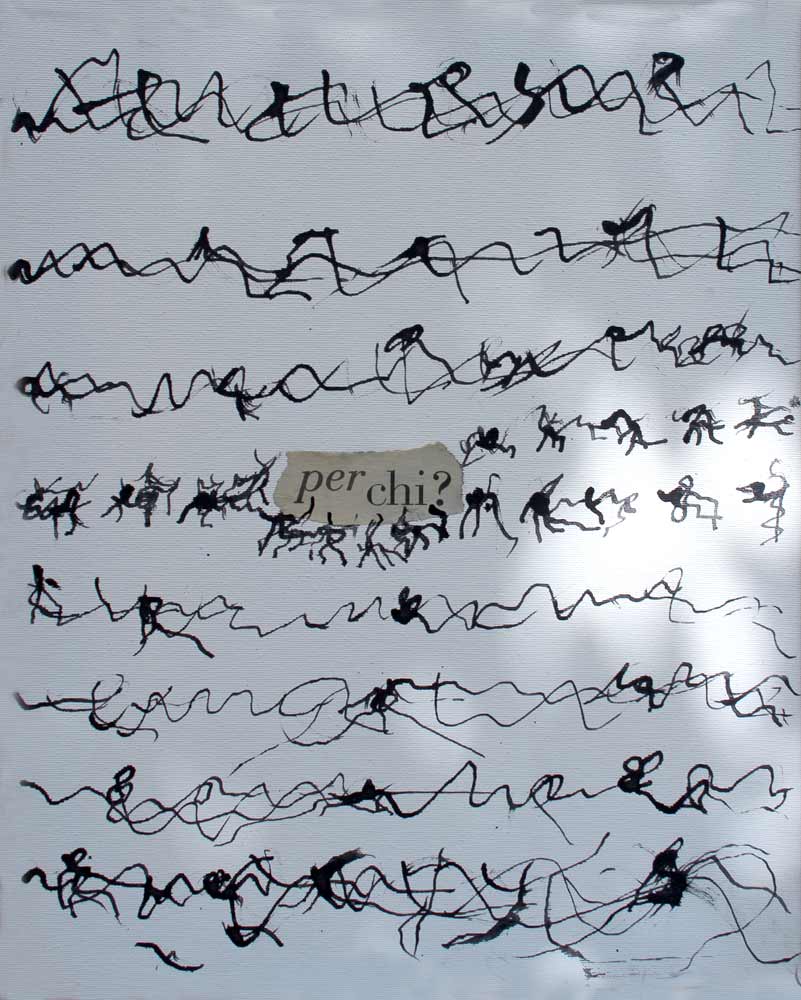 per chi?